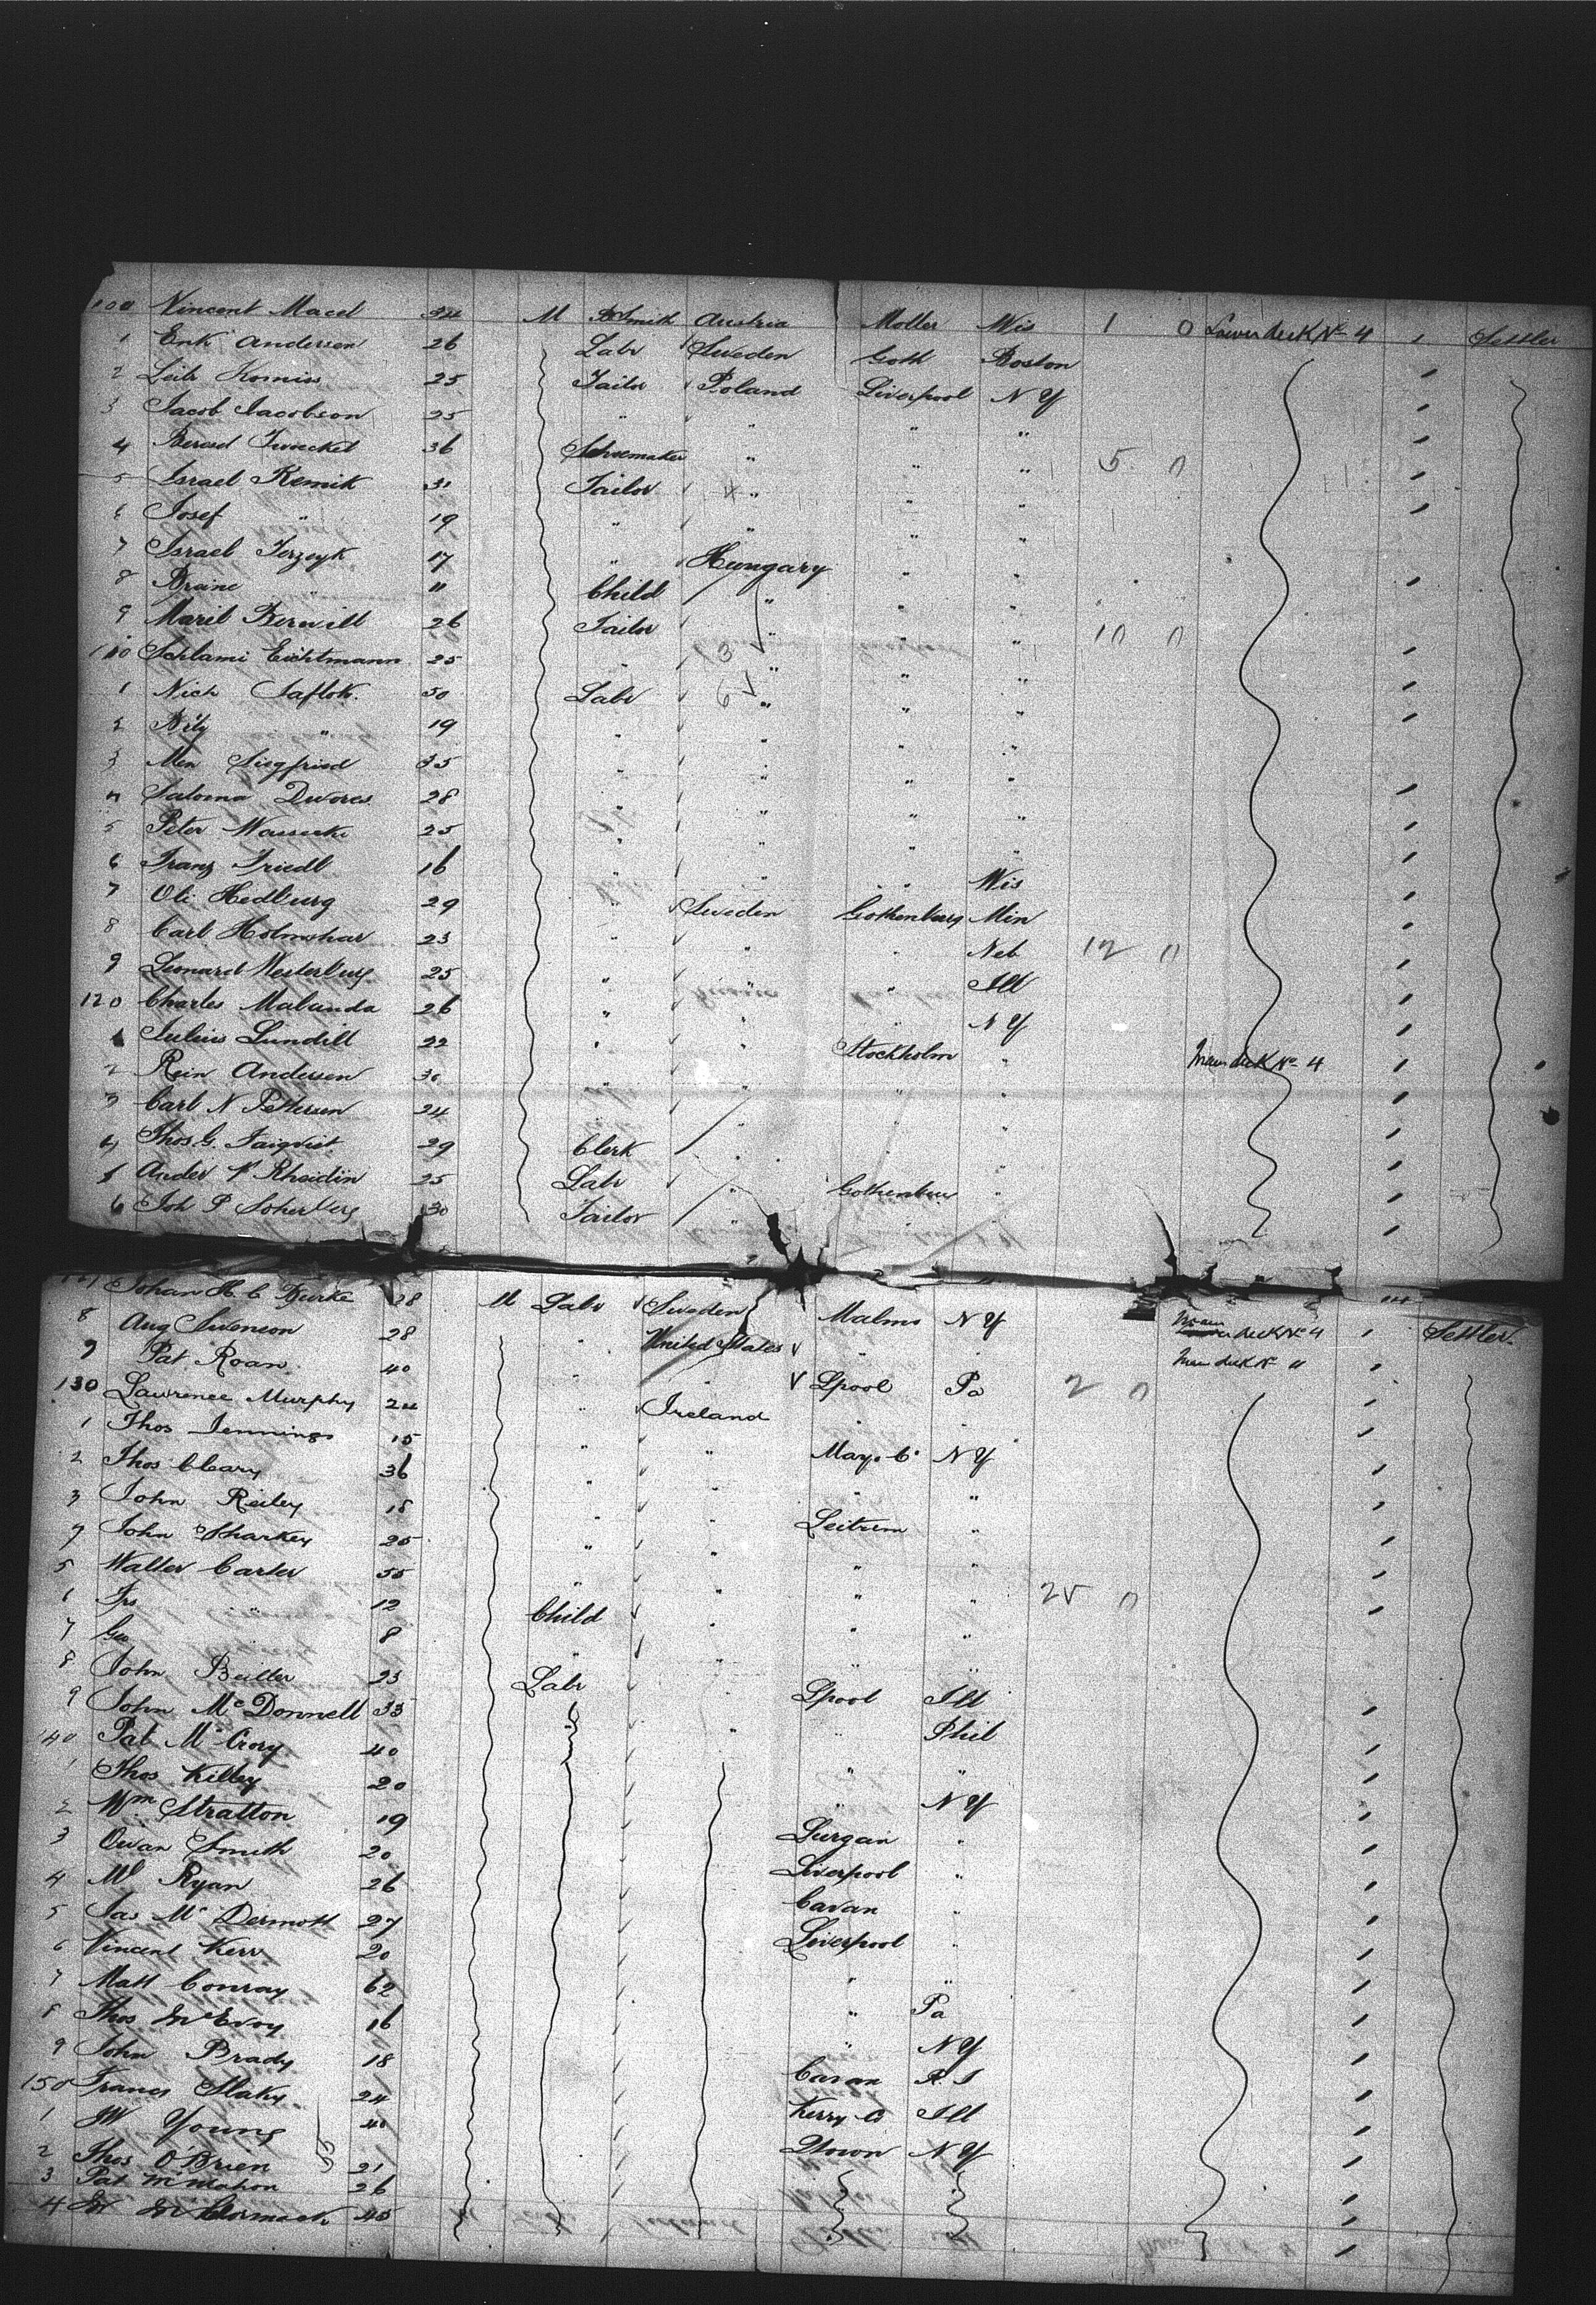 100 Vincent Macel 34 M B Smith Austria Moller Wis 1 0 Lower deck No 4 1 Settler
1 Erik Andersen 26 Labr Sweden Goth Boston
2 Leib Komiss 25 Tailor Poland Liverpool N Y
3 Jacob Jacobson 25 " " " "
4 Berasd 36 Shoemaker " " " 5 0
5 Israel Remik 31 Tailor " " "
6 Josef " 19 " " " "
7 Israel Jerzeyk 17 " Hungary " "
8 Braine " 11 Child " " "
9 Maril Berwill 26 Tailor " " " 10 0
110 Schlami Eichtmann 25 " " " "
1 Nich Saflok 50 Labr " " "
2 " 19 " " " "
3 Men Siegfried 35 " " " "
4 Saloma Dwores 28 " " " "
5 Peter 25 " " " "
6 Franz Friedl 16 " " " Wis
7 Ole Hedburg 29 " Sweden Gothenburg Min
8 Carl Holmshar 23 " " " Neb 12 0
9 Leonard Westerburg 25 " " " Ill
120 Charles Malunda 26 " " " N Y
1 Julius Lundill 22 " " Stockholm " Main deck No 4
2 Rein Andersen 30 " " " "
3 Carl N Pettersen 24 " " " "
4 Thos. G. 29 Clerk " " "
5 Ander P Rheidin 25 Labr " Gothenburg "
6 Joh P Soherberg 30 Tailor " " "
127 Johan H. C Burke 28 M Labr Sweden Malmo N Y Main deck No 4 1 Settler
8 Aug Swenson 28 " United States " " Main deck No 4
9 Pat Roan 40 " " Lpool Pa 2 0
130 Lawrence Murphy 24 " Ireland " "
1 Thos Jennings 15 " " Mayo C N Y
2 Thos Cleary 36 " " "
3 John Reiley 18 " Leitrim "
4 John Sharkey 25 " " " "
5 Walter Carter 55 " " " " 25 0
6 Jas " 12 Child " " "
7 Geo " 8 " " " "
8 John Beiller 23 Labr Lpool Ill
9 John McDonnell 33 " " " Phil
140 Pat McCrory 40 " "
1 Thos Killey 20 " N Y
2 Wm Stratton 19 Lurgan "
3 Owan Smith 20 Liverpool "
4 M Ryan 26 Cavan "
5 Jas McDermott 27 Liverpool "
6 Vincent Kerr 20 " "
7 Matt Conray 62 " Pa
8 Thos McEvoy 16 " N Y
9 John Brady 18 Cavan R. I
150 Frances Slaky 24 Kerry Co Ill
1 JW Young 40 Qtown N Y
2 Thos O'Brien 21
3 Pat McMahon 26
4 M McCormack 45